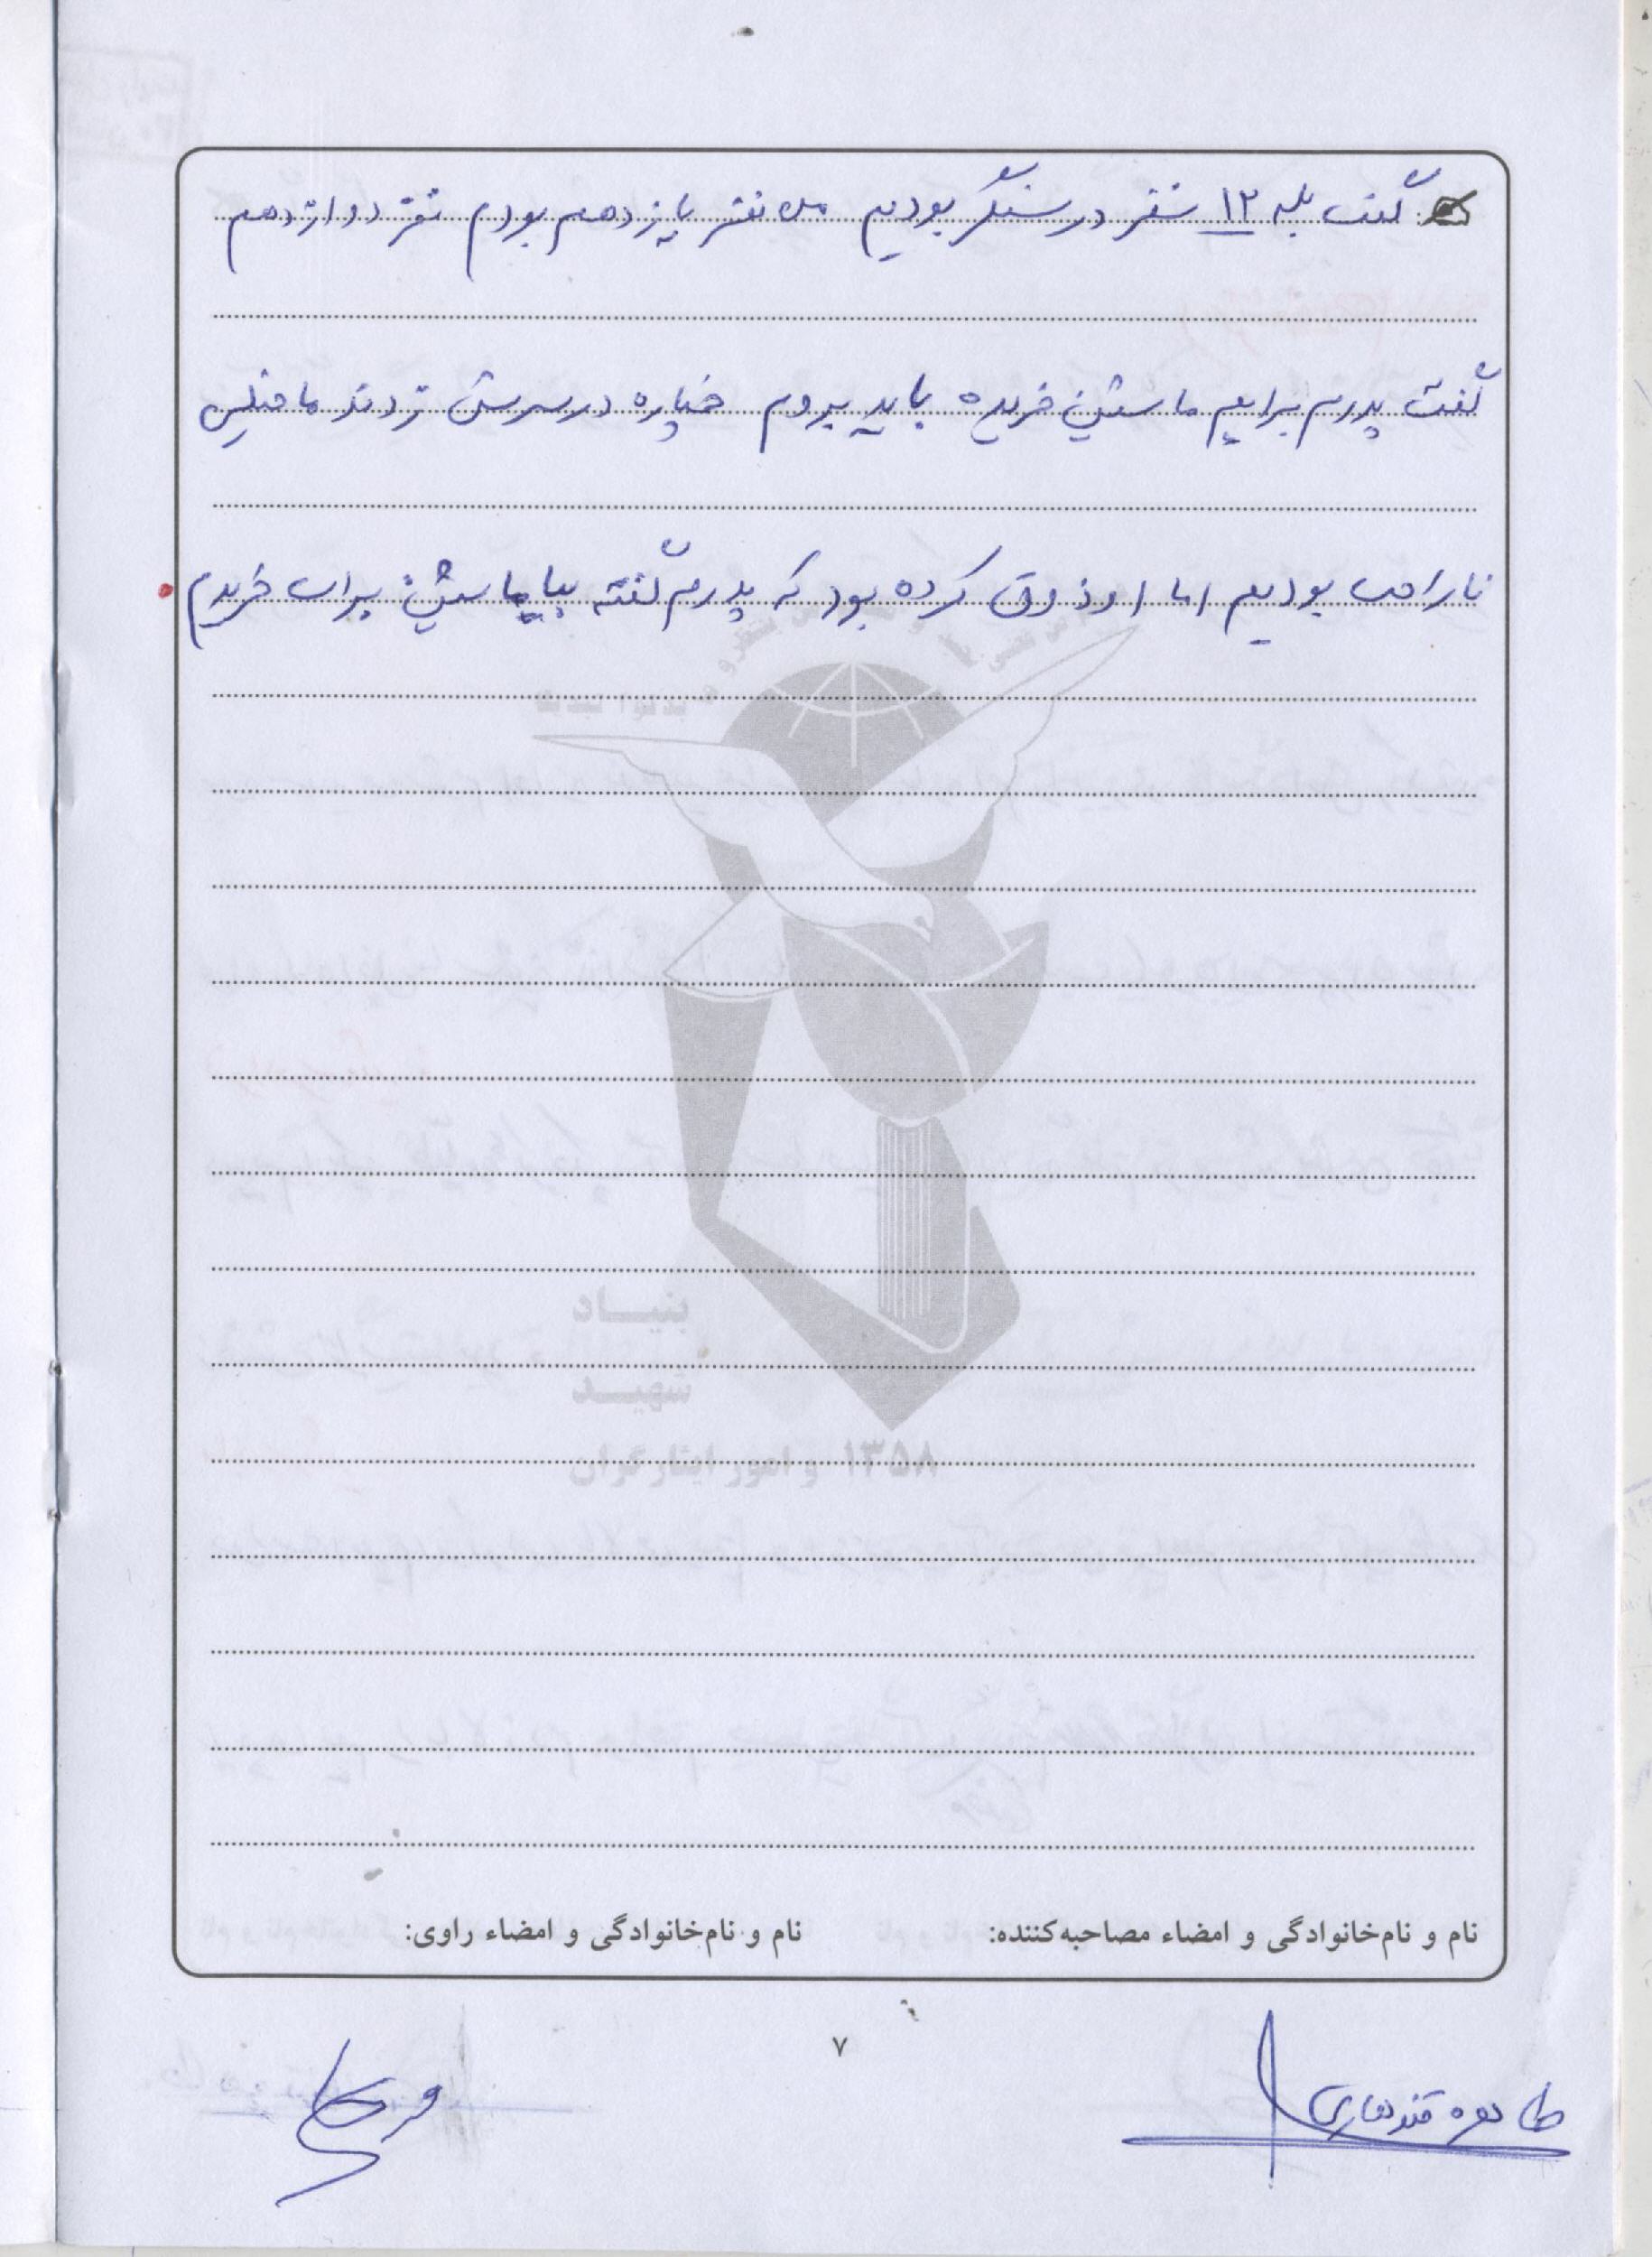 گفت بله ۱۲ نفر در سنگر بودیم من نفر یازدهم بودم نفر دوازدهم
گفت پدرم برایم ماشین خریده باید بروم خمپاره در سرش زدند ما خیلی
ناراحت بودیم اما او ذوق کرده بود که پدرم گفته بیا ماشین برات خریدم
بنیاد
شهید
۱۳۵۸ و امور ایثارگران
نام و نام‌خانوادگی و امضاء مصاحبه‌کننده: نام و نام‌خانوادگی و امضاء راوی:
۷
طاهره قندهاری